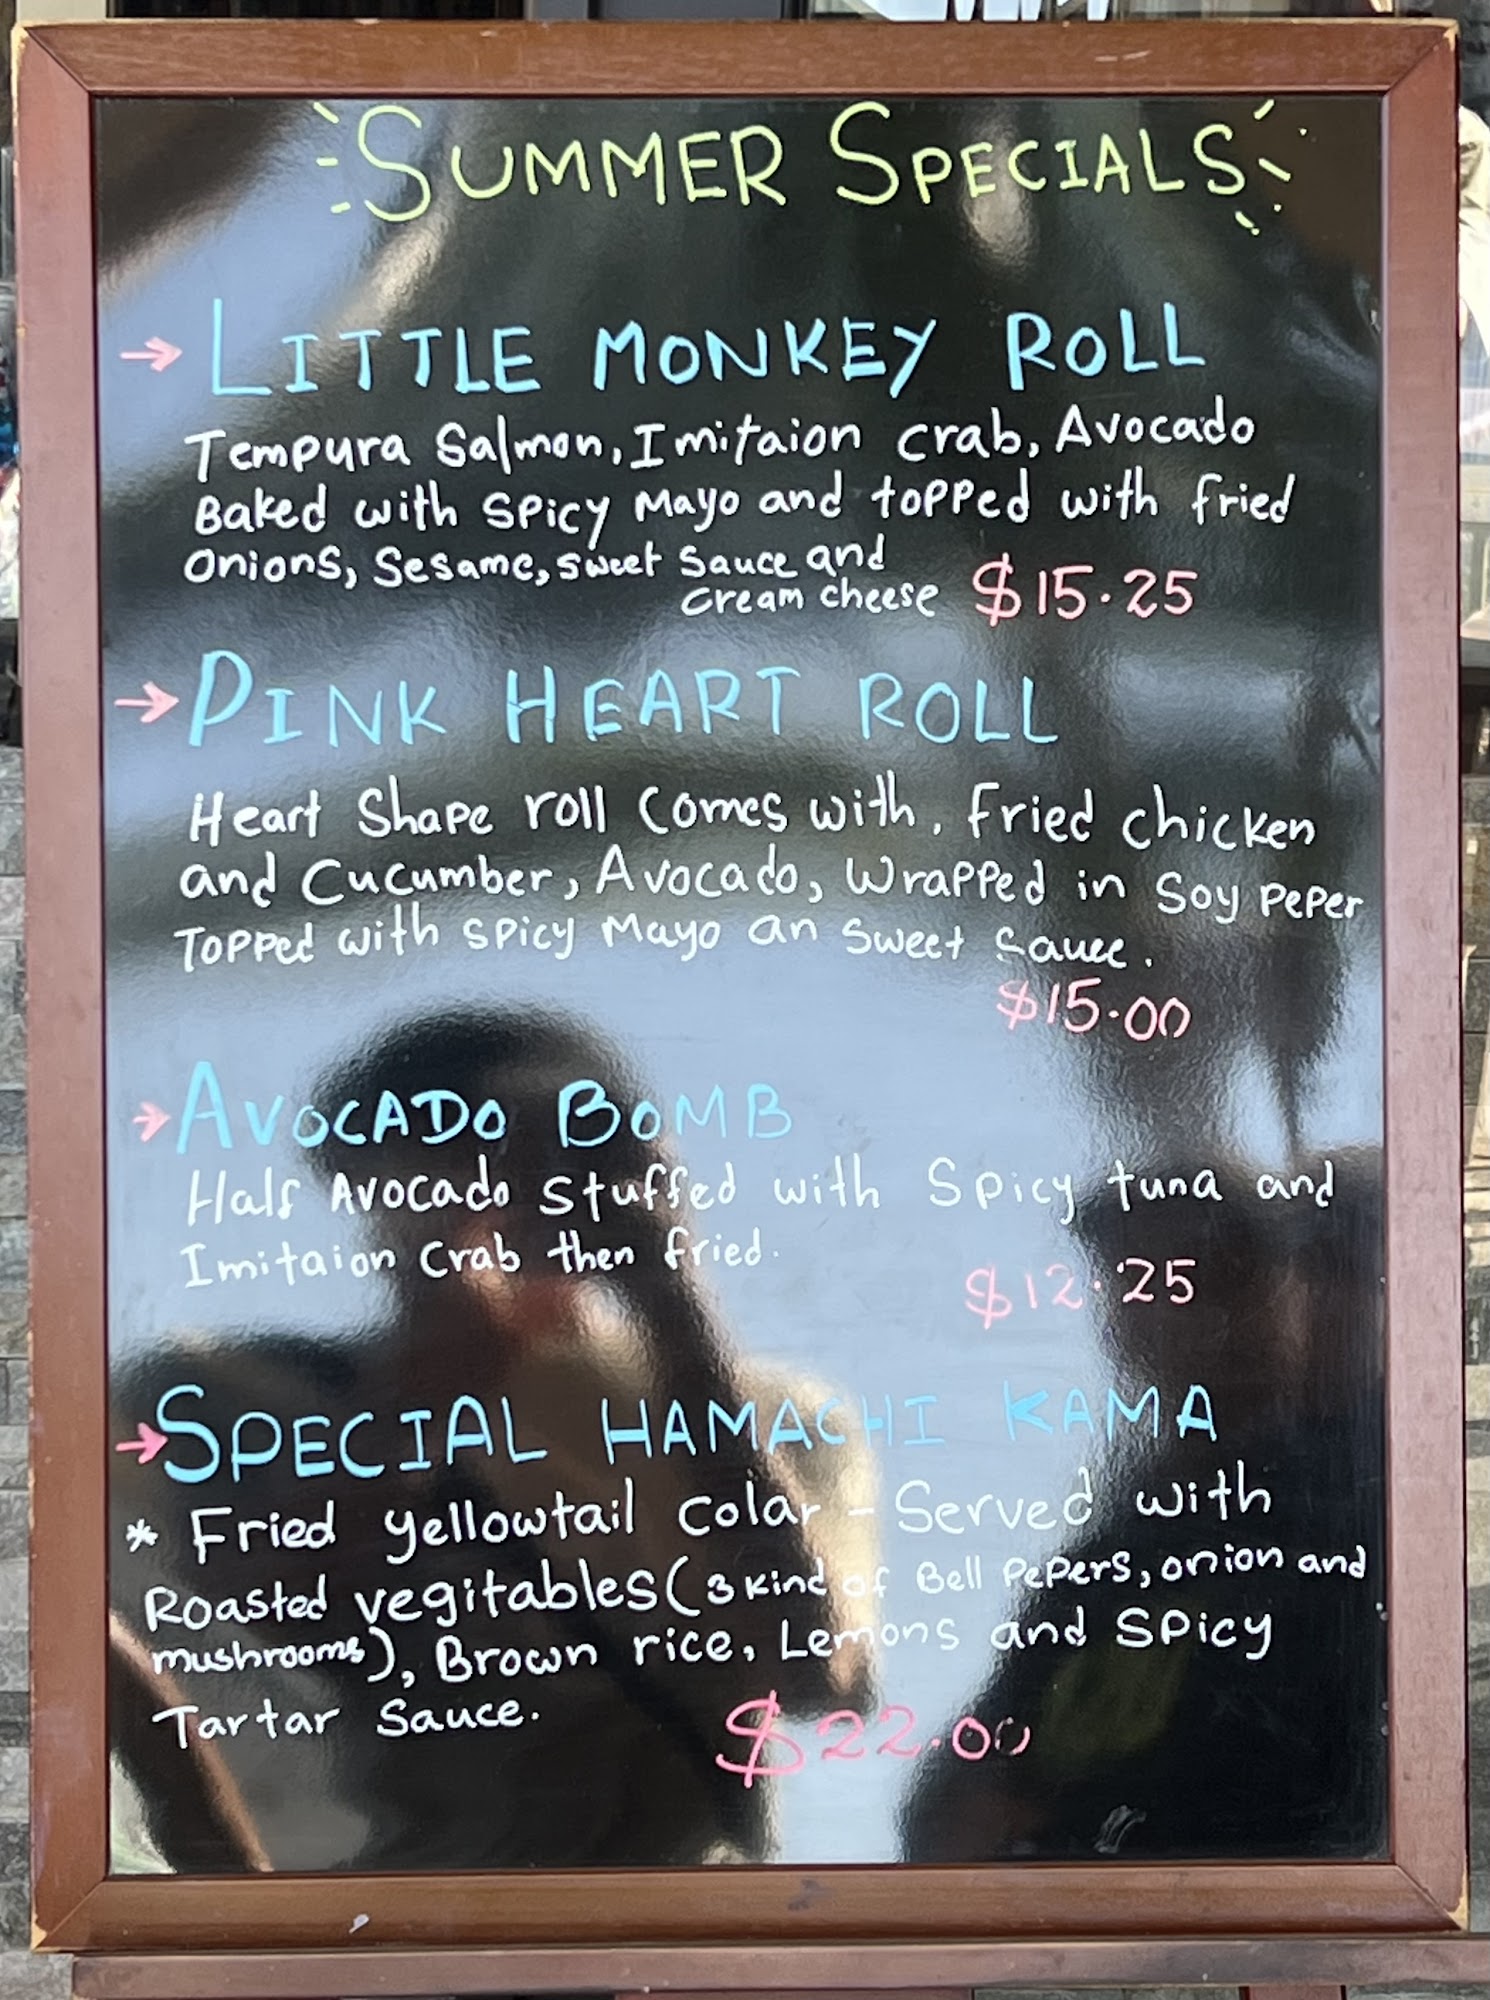 SUMMER SPECIALS
→ LITTLE MONKEY ROLL
Tempura Salmon, Imitaion Crab, Avocado
Baked with spicy Mayo and topped with fried
Onions, Sesame, sweet Sauce and
cream cheese $15.25
→ PINK HEART ROLL
Heart Shape roll Comes with, Fried chicken
and Cucumber, Avocado, Wrapped in Soy Peper
Topped with spicy Mayo an Sweet Sauce.
$15.00
→ AVOCADO BOMB
Half Avocado stuffed with Spicy tuna and
Imitaion Crab then fried.
$12.25
→ SPECIAL HAMACHI KAMA
* Fried yellowtail Colar - Served with
Roasted vegitables (3 kind of Bell Pepers, onion and
mushrooms), Brown rice, Lemons and Spicy
Tartar Sauce.
$22.00